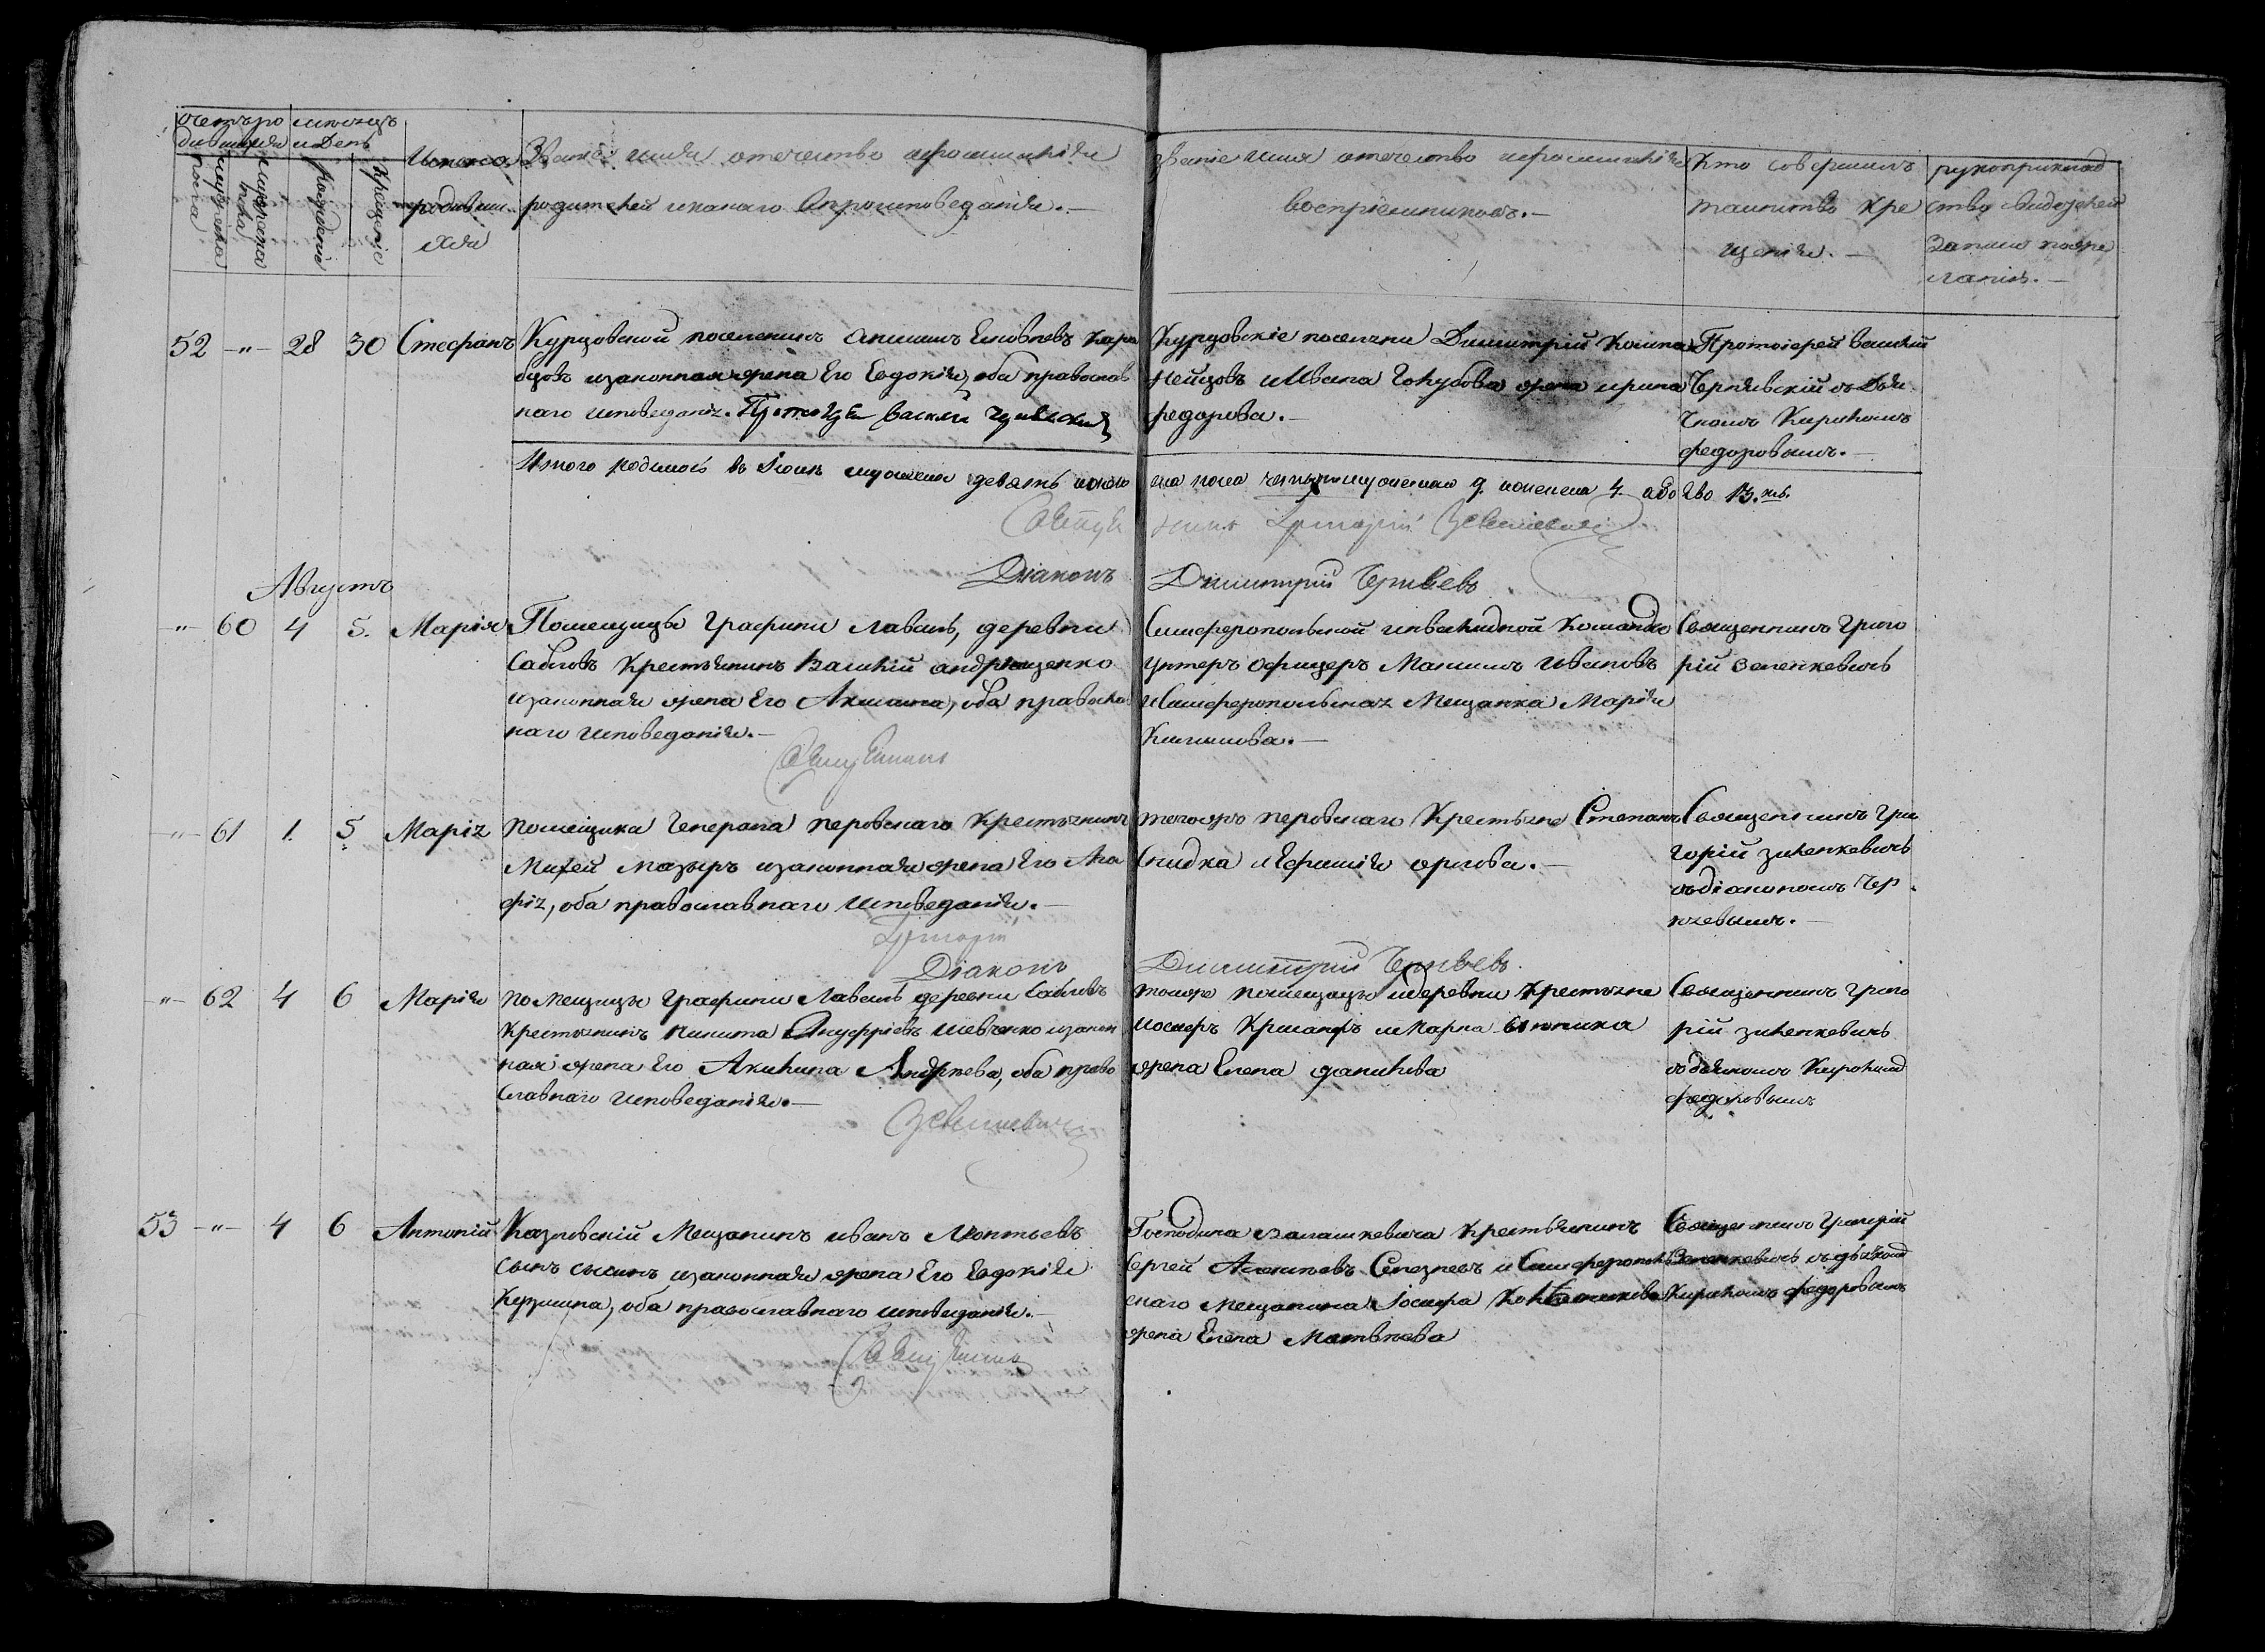 Счетъ ро
дившихся
мужеска
пола
женска
пола
мѣсяцъ
и День
рожденіе
крещеніе
Имена
родивших
ся
Званіе имя отечество и фамилія
родителей и какаго вѣроисповеданія.—
званіе имя отечество и фамилія
воспріемниковъ.—
Кто совершалъ
таинство кре
щенія.—
рукоприклад
ство свидетелей
записи по же
ланію.—
52 -"- 28 30 Стефанъ
Курцовской поселенинъ
и законная жена Его Евдокія, оба православ
наго исповеданія. Протоіерей Василій
Курцовскіе поселяне Димитрій
и Ивана Голубова жена ирина
федорова.—
Протоіерей василій
Чернявскій съ Дья
чкомъ Кириломъ
федоровымъ.—
Итого родилось въ Іюлѣ мужеска девять и жен
ска пола четыри мужескаго 9. и женска 4. а обоего 13.
Священ
никъ Григорій Зеленкевичь
Діаконъ
Димитрій Чернѣевъ
Августъ
-"- 60 4 5. Марія
Помещицы Графини Лаваль, деревни
Сабловъ Крестьянинъ Василій андрющенко
и законная жена Его Акилина, оба православ
наго исповеданія.—
Симферопольской инвалидной Команды
унтеръ Офицеръ Максимъ Ивановъ
и Симферопольская Мещанка Марія
Климова.—
Священникъ Григо
рій зеленкевичь
Священникъ
-"- 61 1. 5. Марія
Помещика Генерала перовскаго Крестьянинъ
Михей Мазыръ и законная жена Его Ага
фія, оба православнаго исповеданія.—
тогожъ перовскаго Крестьяне Степанъ
Скидка и Ефимія орлова.—
Священникъ Гри
горій зиленкевичь
съ діакономъ Чер
нѣевымъ.—
Григорій
Діаконъ
Димитрій Чернѣевъ.
-"- 62 4 6 Марія
Помещицы Графини Лаваль деревни Сабловъ
Крестьянинъ Никита Ануфріевъ Шевченко и закон
ная жена Его Акилина Андреева, оба право
славнаго исповеданія.—
тояже помещицы и деревни Крестьяне
Іосифъ и Карпа
жена Елена данилова
Священникъ Григо
рій зиленкевичь
съ дьячкомъ Кириломъ
федоровымъ
Зеленкевичь
53 -"- 4 6 Антоній
Казловскій Мещанинъ иванъ Леонтьевъ
сынъ и законная жена Его Евдокія
Кузмина, оба православнаго исповеданія.—
Господина Крестьянинъ
Сергей Селезневъ и Симферополь
скаго мещанина Іосифа
жена Елена Матвѣева
Священникъ Григорій
Зеленкевичь съ дьячкомъ
Кириломъ федоровымъ
Священникъ